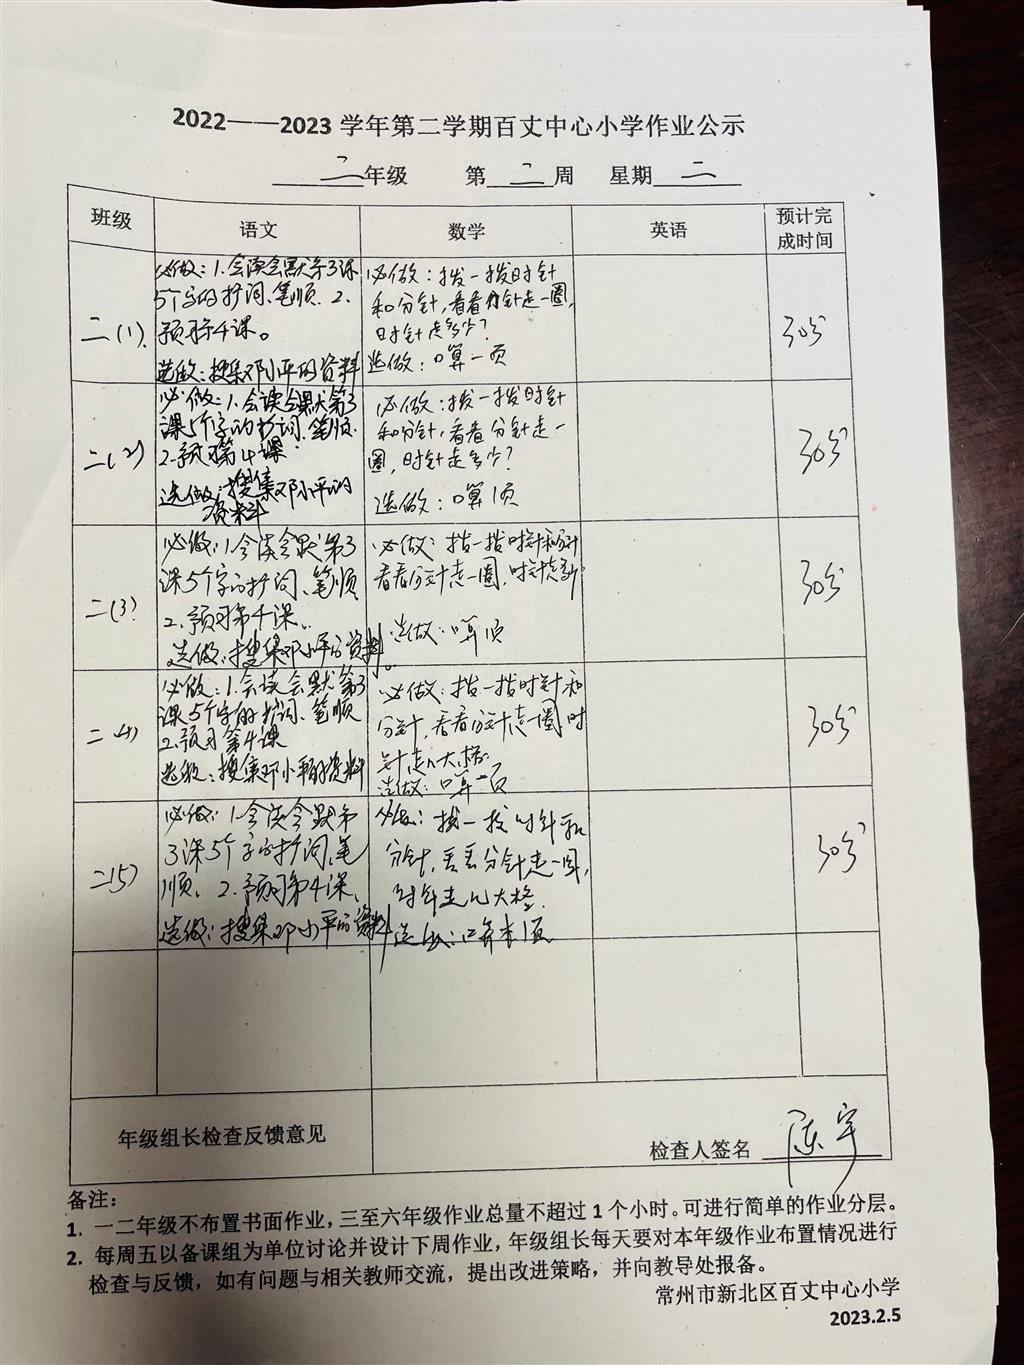 2022——2023 学年第二学期百丈中心小学作业公示
二年级 第二周 星期二
班级 语文 数学 英语 预计完
成时间
二(1)
必做：1.会读会默第3课
5个字的扩词、笔顺. 2.
预习第4课。
选做：搜集邓小平的资料
必做：拨一拨时针
和分针，看看分针走一圈，
时针走多少？
选做：口算一页
30分
二(2)
必做：1.会读会默第3
课5个字的扩词、笔顺
2.预习第4课
选做：搜集邓小平的
资料
必做：拨一拨时针
和分针，看看分针走一
圈，时针走多少？
选做：口算1页
30分
二(3)
必做：1.会读会默第3
课5个字的扩词、笔顺
2.预习第4课.
选做：搜集邓小平的资料。
必做：拨一拨时针和分针
看看分针走一圈，时针走多少
选做：口算1页
30分
二(4)
必做：1.会读会默第3
课5个字的扩词、笔顺
2.预习第4课
选做：搜集邓小平的资料
必做：拨一拨时针和
分针，看看分针走一圈，时
针走几大格.
选做：口算一页
30分
二(5)
必做：1.会读会默第
3课5个字的扩词、笔
顺. 2.预习第4课.
选做：搜集邓小平的资料
必做：拨一拨时针和
分针，看看分针走一圈，
时针走几大格.
选做：口算本1页
30分
年级组长检查反馈意见
检查人签名 陈宇
备注：
1. 一二年级不布置书面作业，三至六年级作业总量不超过 1 个小时。可进行简单的作业分层。
2. 每周五以备课组为单位讨论并设计下周作业，年级组长每天要对本年级作业布置情况进行
检查与反馈，如有问题与相关教师交流，提出改进策略，并向教导处报备。
常州市新北区百丈中心小学
2023.2.5